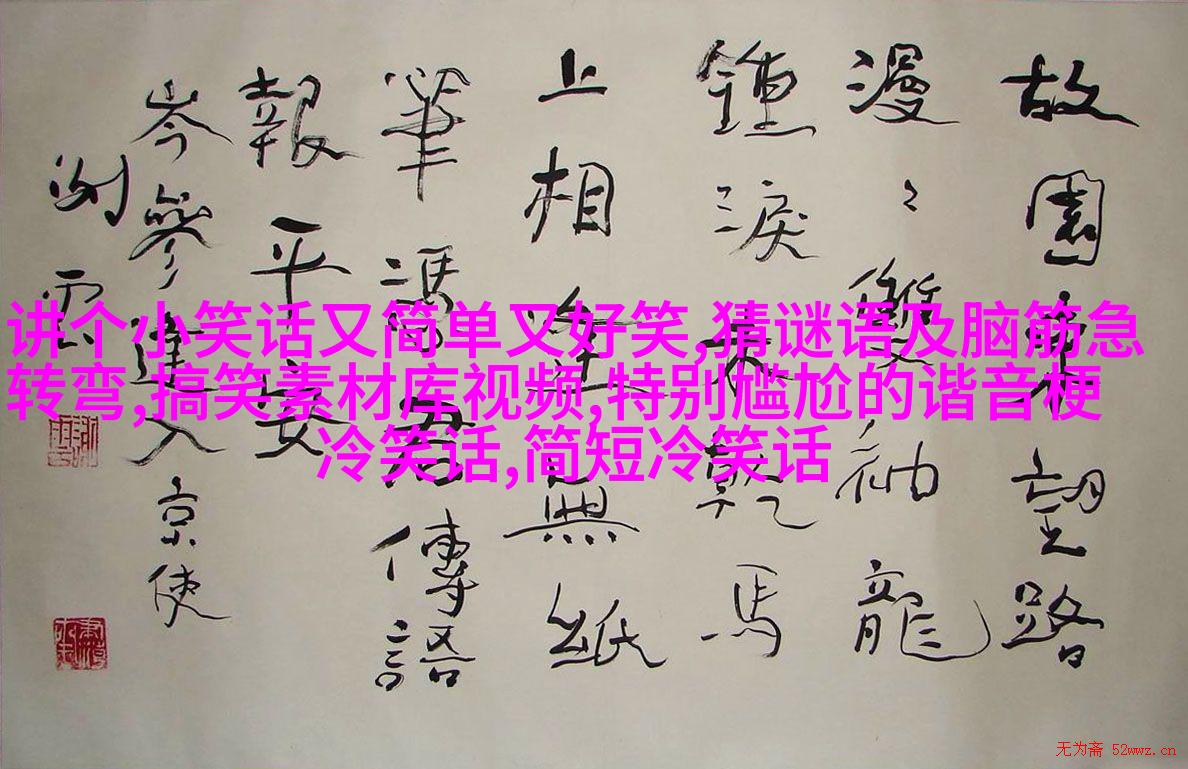 故園東望路
漫々雙袖龍
鍾淚不乾馬
上相逢無紙
筆馮君傳語
報平安
岑參逢入京使
讲个小笑话又简单又好笑,猜谜语及脑筋急
转弯,搞笑素材库视频,特别尴尬的谐音梗
冷笑话,简短冷笑话
无为斋 52wwz.cn